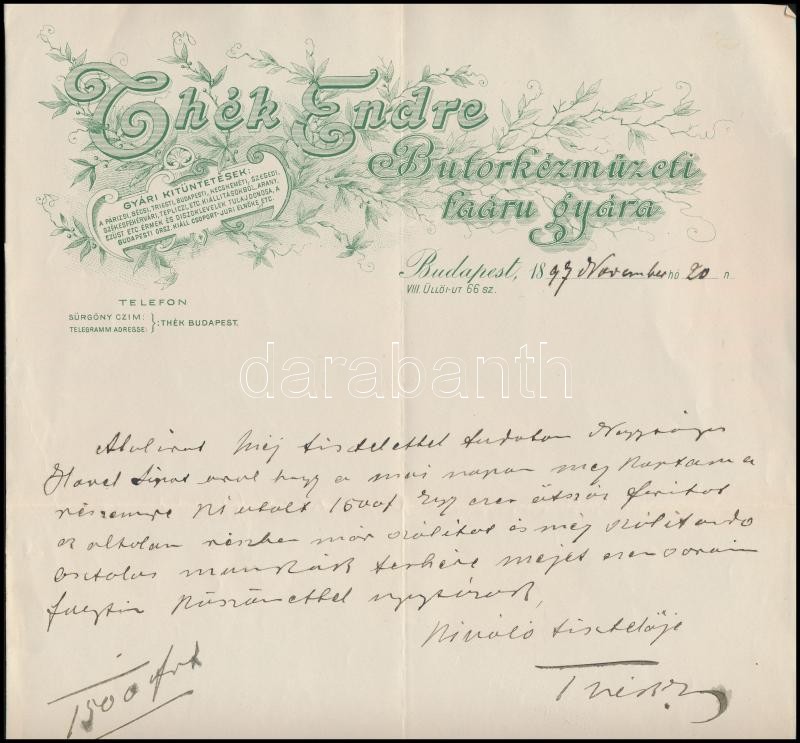 Thék Endre
Butorkézmüzeti
faáru gyára
GYÁRI KITÜNTETÉSEK:
A PÁRIZSI, BÉCSI, TRIESTI, BUDAPESTI, KECSKEMÉTI, SZEGEDI,
SZÉKESFEHÉRVÁRI, TEPLICZI, ETC. KIÁLLITÁSOKBÓL ARANY,
EZÜST ETC. ÉRMEK ÉS DISZOKLEVELEK TULAJDONOSA, A
BUDAPESTI ORSZ. KIÁLL. CSOPORT-JURI ELNÖKE, ETC.
Budapest, 1897 November hó 20 n
VIII. ÜLLŐI-UT 66 SZ.
TELEFON
SÜRGÖNY CZIM:
TELEGRAMM ADRESSE: }: THÉK BUDAPEST.
darabanth
Alulirot Méj tisztelettel tudatom Nagyságos
Havel urol hogy a mai napon meg kaptam a
részemre ki utalt 1500f Egy ezer ötszáz foritot
az altalam részben már szálitot és még szálitando
asztalos munkák terhére mejet ezen soraim
köszönettel nyugtázok,
Kiváló tisztelője
Thék E
1500 frt